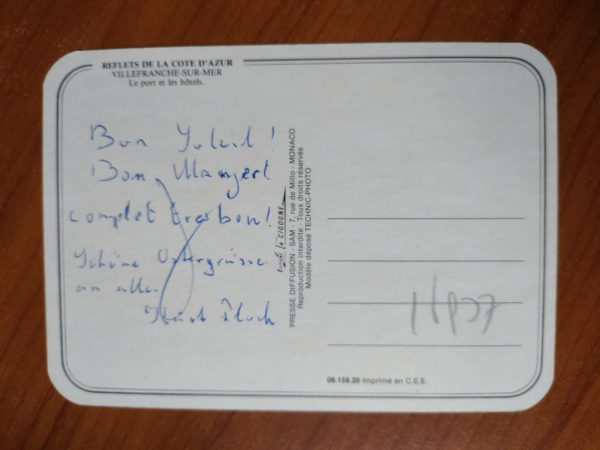 REFLETS DE LA COTE D'AZUR
VILLEFRANCHE-SUR-MER
Le port et les hôtels.
Bon Soleil!
Bon Manger!
complet tresbon!
Schöne Ostergrüsse
an alle.
Edition la CIGOGNE
PRESSE DIFFUSION - SAM - 7, rue de Millo - MONACO
Reproduction interdite - Tous droits réservés
Modèle déposé TECHNIC-PHOTO
06.159.20 Imprimé en C.E.E.